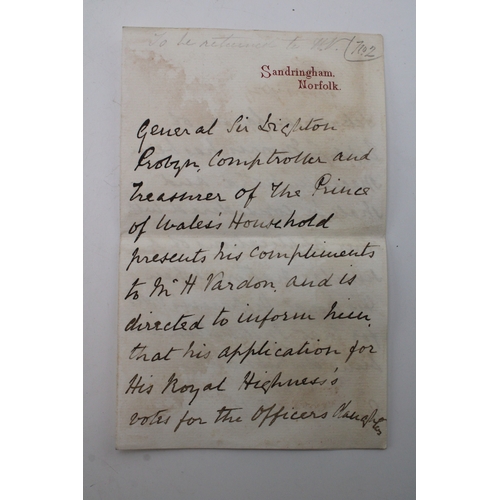 To be returned to (No 2
Sandringham.
Norfolk.
General Sir Dighton
Probyn, Comptroller and
Treasurer of The Prince
of Wales's Household
presents his compliments
to Mr H Vardon, and is
directed to inform him,
that his application for
His Royal Highness's
votes for the Officers Daughters